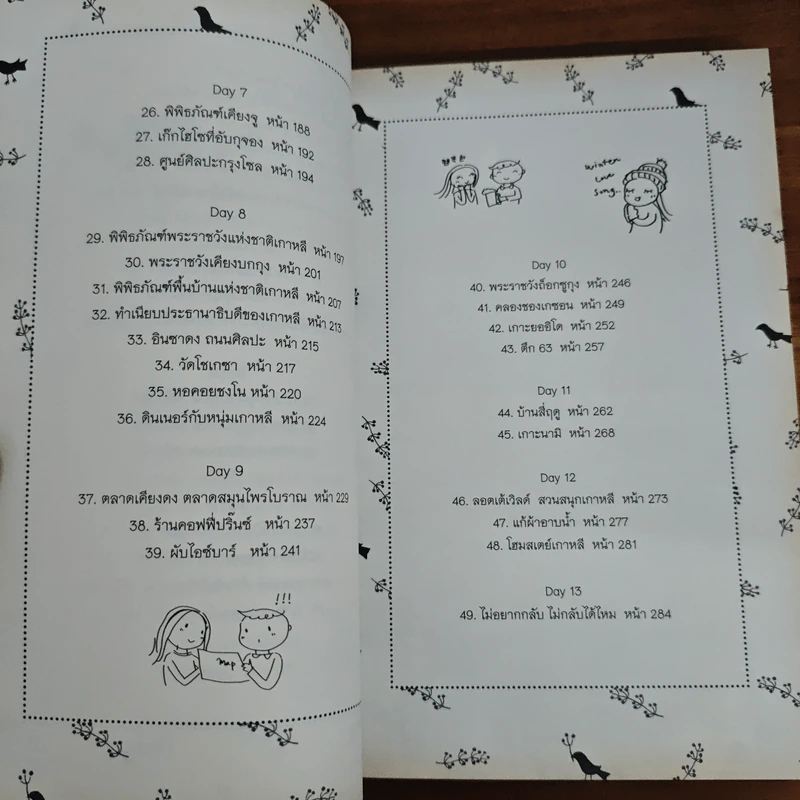 Day 7
26. พิพิธภัณฑ์เคียงจู หน้า 188
27. เก๊กไฮโซที่อับกุจอง หน้า 192
28. ศูนย์ศิลปะกรุงโซล หน้า 194
Day 8
29. พิพิธภัณฑ์พระราชวังแห่งชาติเกาหลี หน้า 197
30. พระราชวังเคียงบกกุง หน้า 201
31. พิพิธภัณฑ์พื้นบ้านแห่งชาติเกาหลี หน้า 207
32. ทำเนียบประธานาธิบดีของเกาหลี หน้า 213
33. อินซาดง ถนนศิลปะ หน้า 215
34. วัดโชเกซา หน้า 217
35. หอคอยชงโน หน้า 220
36. ดินเนอร์กับหนุ่มเกาหลี หน้า 224
Day 9
37. ตลาดเคียงดง ตลาดสมุนไพรโบราณ หน้า 229
38. ร้านคอฟฟี่ปริ๊นซ์ หน้า 237
39. ผับไอซ์บาร์ หน้า 241
!!!
map
winter
love
song..
Day 10
40. พระราชวังถ็อกซูกุง หน้า 246
41. คลองชองเกชอน หน้า 249
42. เกาะยออิโด หน้า 252
43. ตึก 63 หน้า 257
Day 11
44. บ้านสี่ฤดู หน้า 262
45. เกาะนามิ หน้า 268
Day 12
46. ลอตเต้เวิลด์ สวนสนุกเกาหลี หน้า 273
47. แก้ผ้าอาบน้ำ หน้า 277
48. โฮมสเตย์เกาหลี หน้า 281
Day 13
49. ไม่อยากกลับ ไม่กลับได้ไหม หน้า 284